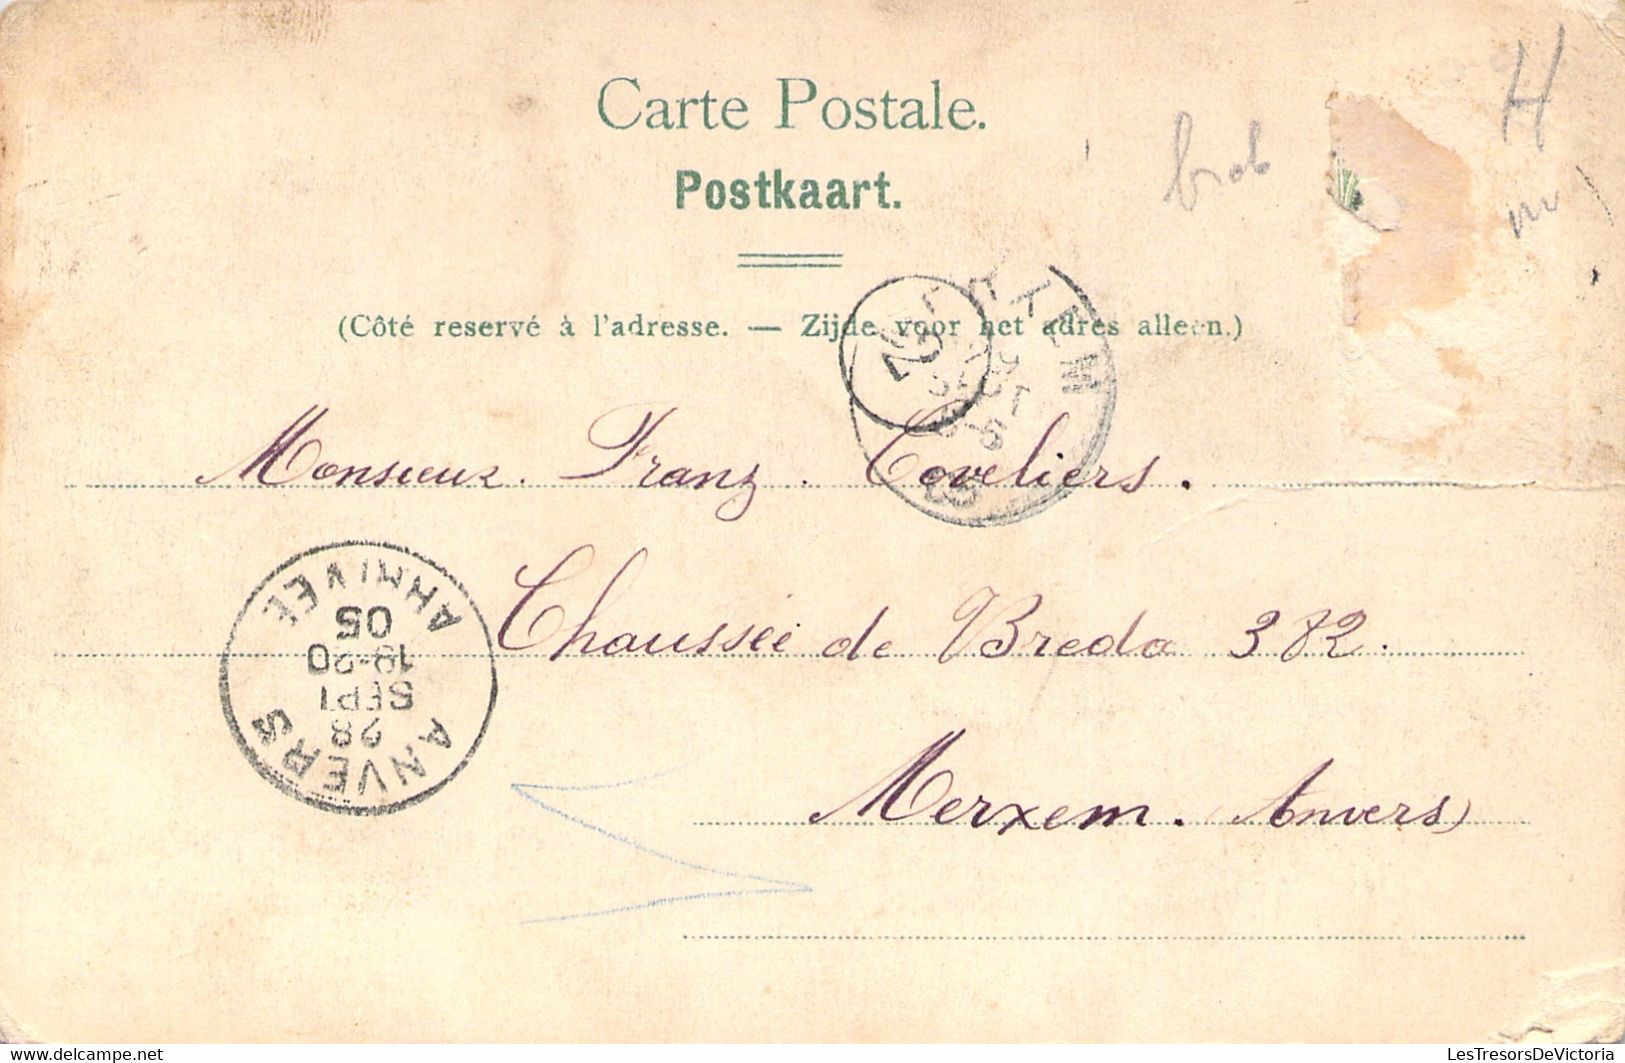 Carte Postale.
Postkaart.
brob
H
(Côté reservé à l'adresse. — Zijde voor het adres alleen.)
Monsieur. Franz. Coveliers.
Chaussée de Breda 382.
Merxem. Anvers
ANVERS
28
SEPT
18-20
05
ARRIVEE
SEPT
05
www.delcampe.net
LesTresorsDeVictoria